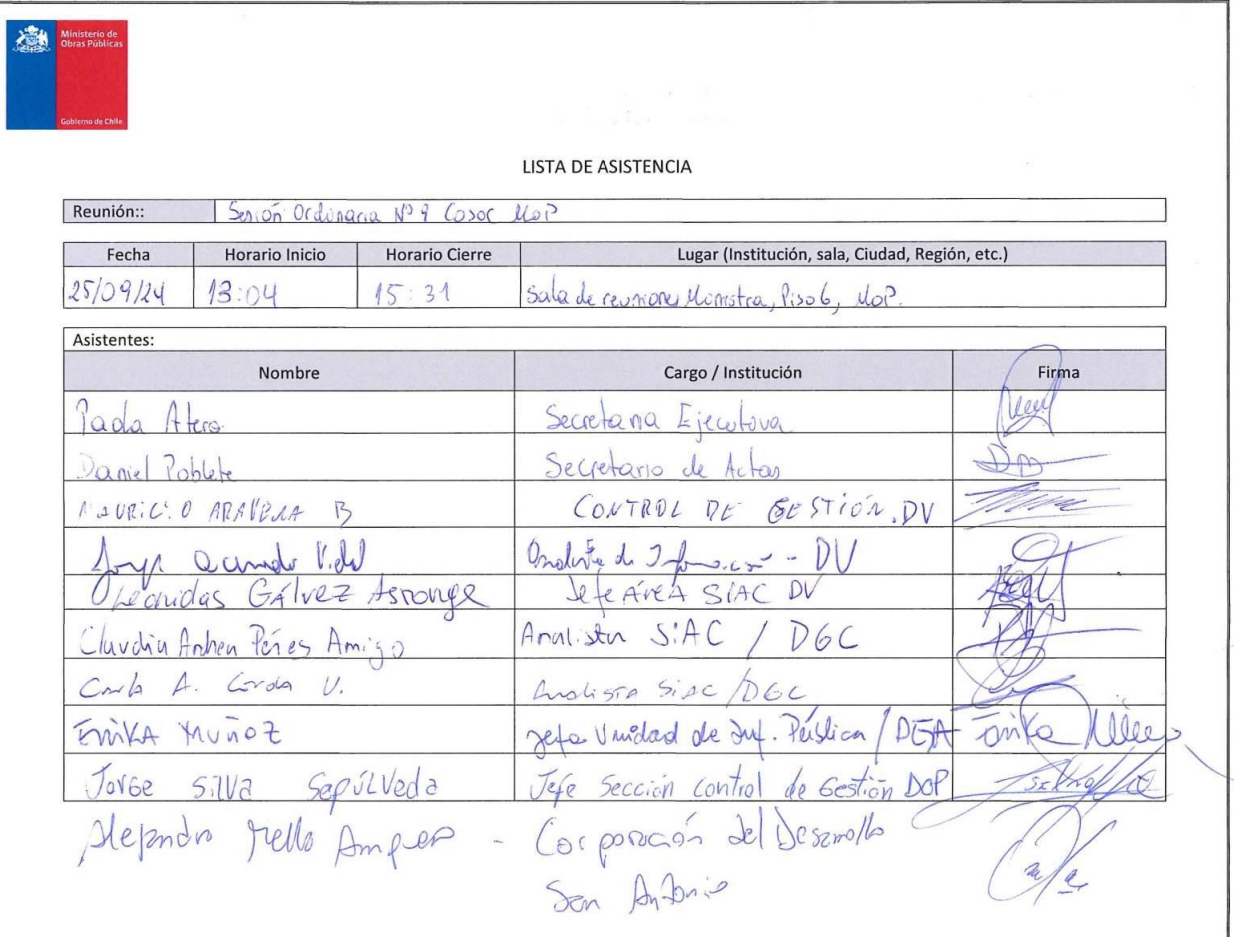 Ministerio de
Obras Públicas
Gobierno de Chile
LISTA DE ASISTENCIA
Reunión:: Sesión Ordinaria Nº 9 Cosoc MOP
Fecha Horario Inicio Horario Cierre Lugar (Institución, sala, Ciudad, Región, etc.)
25/09/24 13:04 15:31 Sala de reuniones Ministra, Piso 6, MOP.
Asistentes:
Nombre Cargo / Institución Firma
Paola Secretaria Ejecutiva
Daniel Poblete Secretario de Actas
MAURICIO ARAVENA B CONTROL DE GESTIÓN, DV
Vidal Analista de Información - DV
Leonidas GÁlvez Jefe ÁreA SIAC DV
Claudia Pérez Amigo Analista SIAC / DGC
Carla A. Cerda V. Analista SIAC / DGC
ERIKA MUÑOZ Jefa Unidad de Inf. Pública / DGA Erika
JorGe SilVa SepÚLVeda Jefe Sección control de Gestión DOP
Alejandro Tello - Corporación del Desarrollo
San Antonio